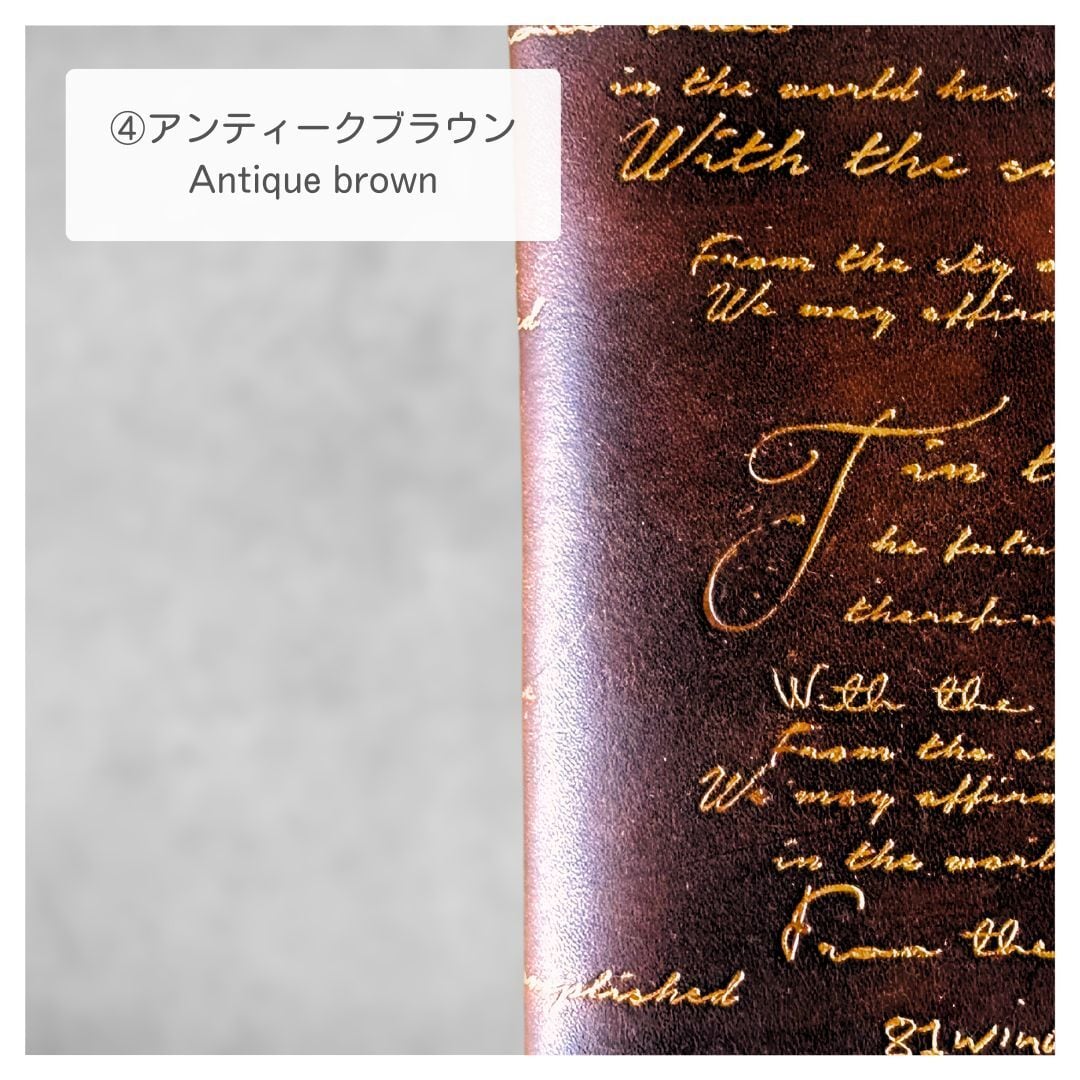 ④アンティークブラウン
Antique brown
in the world has
With the
From the sky
We may affirm
T in
he futu
therefore
With the
From the
We may affirm
in the world
From the
mplished
81wind